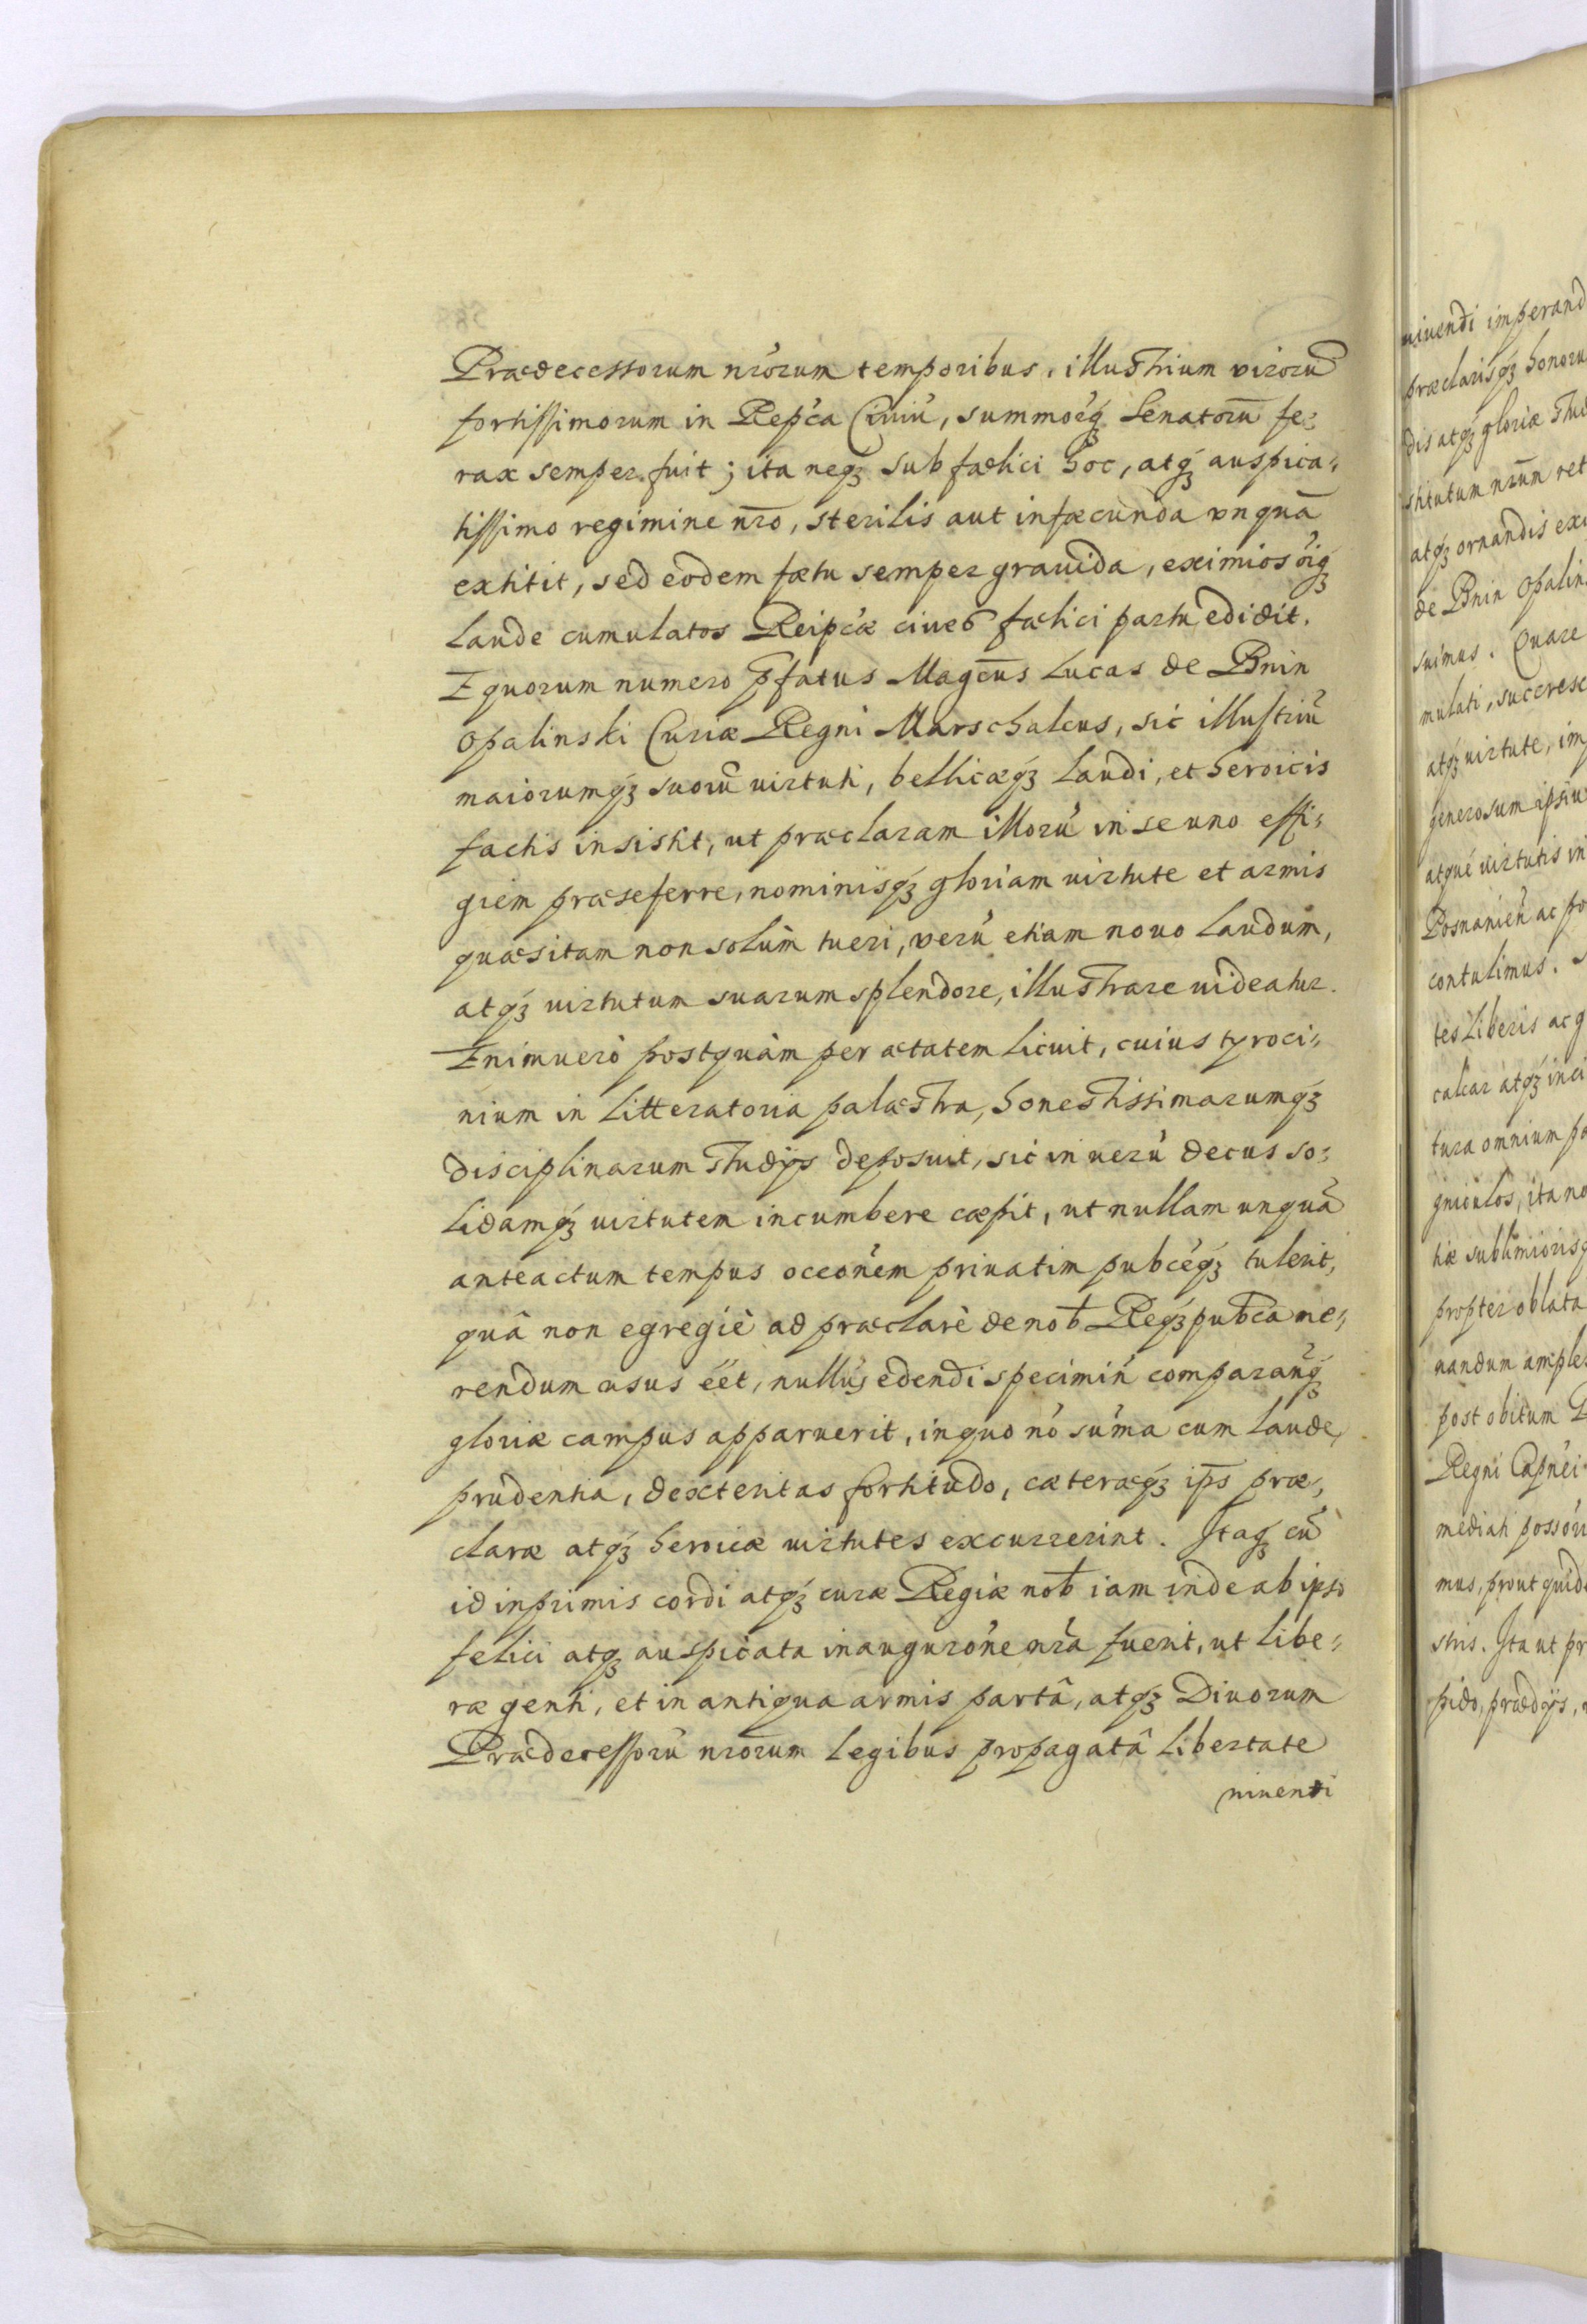 Prædecessorum nŕorum temporibus, illustrium virorū
fortissimorum in Repća Ciuiū, summoḿq́ Senatorū fe:
rax semper fuit; ita neq́ sub fælici hoc, atq́ auspica:
tissimo regimine nr̄o, sterilis aut infæcunda vnquā
extitit, sed eodem fætu semper grauida, eximios óiq́
laude cumulatos Reipćæ ciues fælici partu edidit.
E quorum numero p̄fatus Magcūs Lucas de Bnin
Opalinski Curiæ Regni Marschalcus, sic illustriū
maiorumq́ suorū uirtuti, bellicæq́ laudi, et heroicis
factis insistit, ut præclaram illorū in se uno effi:
giem præseferre, nominisq́ gloriam uirtute et armis
quæsitam non solùm tueri, verū etiam nouo laudum,
atq́ uirtutum suarum splendore, illustrare uideatur.
Enimuerò postquàm per ætatem licuit, cuius tyroci:
nium in litteratoria palæstra, honestissimarumq́
disciplinarum studijs deposuit, sic in uerū decus so:
lidamq́ uirtutem incumbere cæpit, ut nullam unquā
anteactum tempus occońem priuatim pubcéq́ tulerit,
quâ non egregiè ad præclarè de nob̄ Req́ pub̄ca me:
rendum usus éet, nullúsq́ edendi specimiń comparanq́
gloriæ campus apparuerit, in quo nó súma cum laude,
prudentia, dexteritas fortitudo, cæteræq́ ip̄s præ:
claræ atq́ heroicæ uirtutes excurrerint. Itaq́ cū
id inprimis cordi atq́ curæ Regiæ nob̄ iam inde ab ipso
felici atq́ auspicata inauguróne nŕa fuerit, ut libe:
ræ genti, et in antiqua armis partâ, atq́ Diuorum
Prædecessorū nŕorum legibus propagatâ libertate
uiuendi
uiuendi imperand
præclarisq́ honoru
dis atq́ gloriæ stud
stitutum nr̄um ret
atq́ ornandis exi
de Bnin Opalin
suimus. Quare
mulati, succresc
atq́ uirtute, im
generosum ipsiu
atque uirtutis in
Posnanień ac fo
contulimus. S
tes liberis ac g
calcar atq́ inci
tura omnium po
gniculos, ita no
tiæ sublimiorisq
propter oblata
nandum amples
post obitum
Regni Capnei
mediati possór
mus, prout quid
stris. Ita ut pr
pido, prædijs,